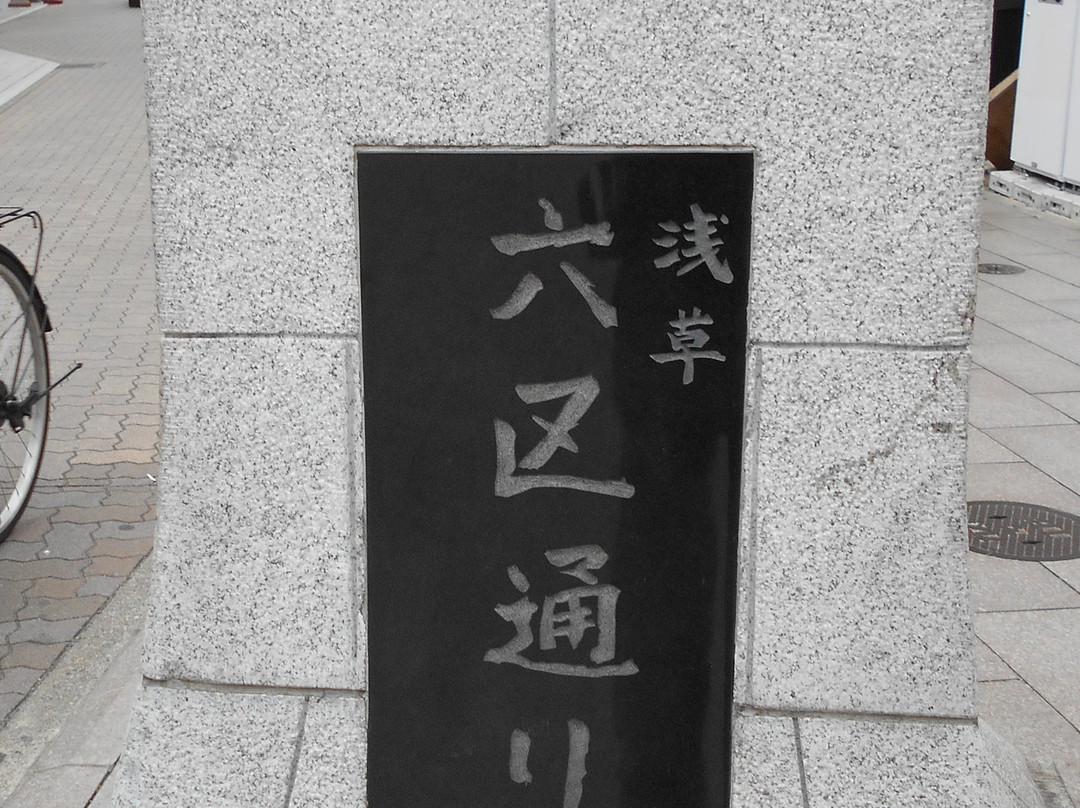 浅草
六区通り